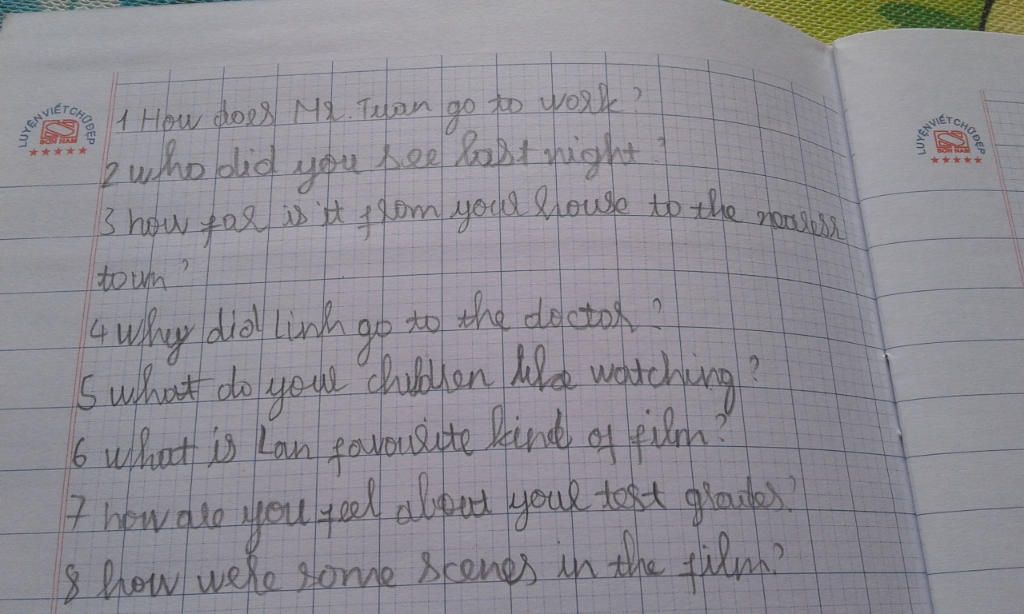 LUYỆN VIẾT CHỮ ĐẸP
LUYỆN VIẾT CHỮ ĐẸP
1 How does Mr. Tuan go to work?
2 who did you see last night?
3 how far is it from your house to the
town?
4 Why did Linh go to the doctor?
5 what do your children like watching?
6 what is Lan favourite kind of film?
7 how are you feel about your test grades?
8 how were some scenes in the film?